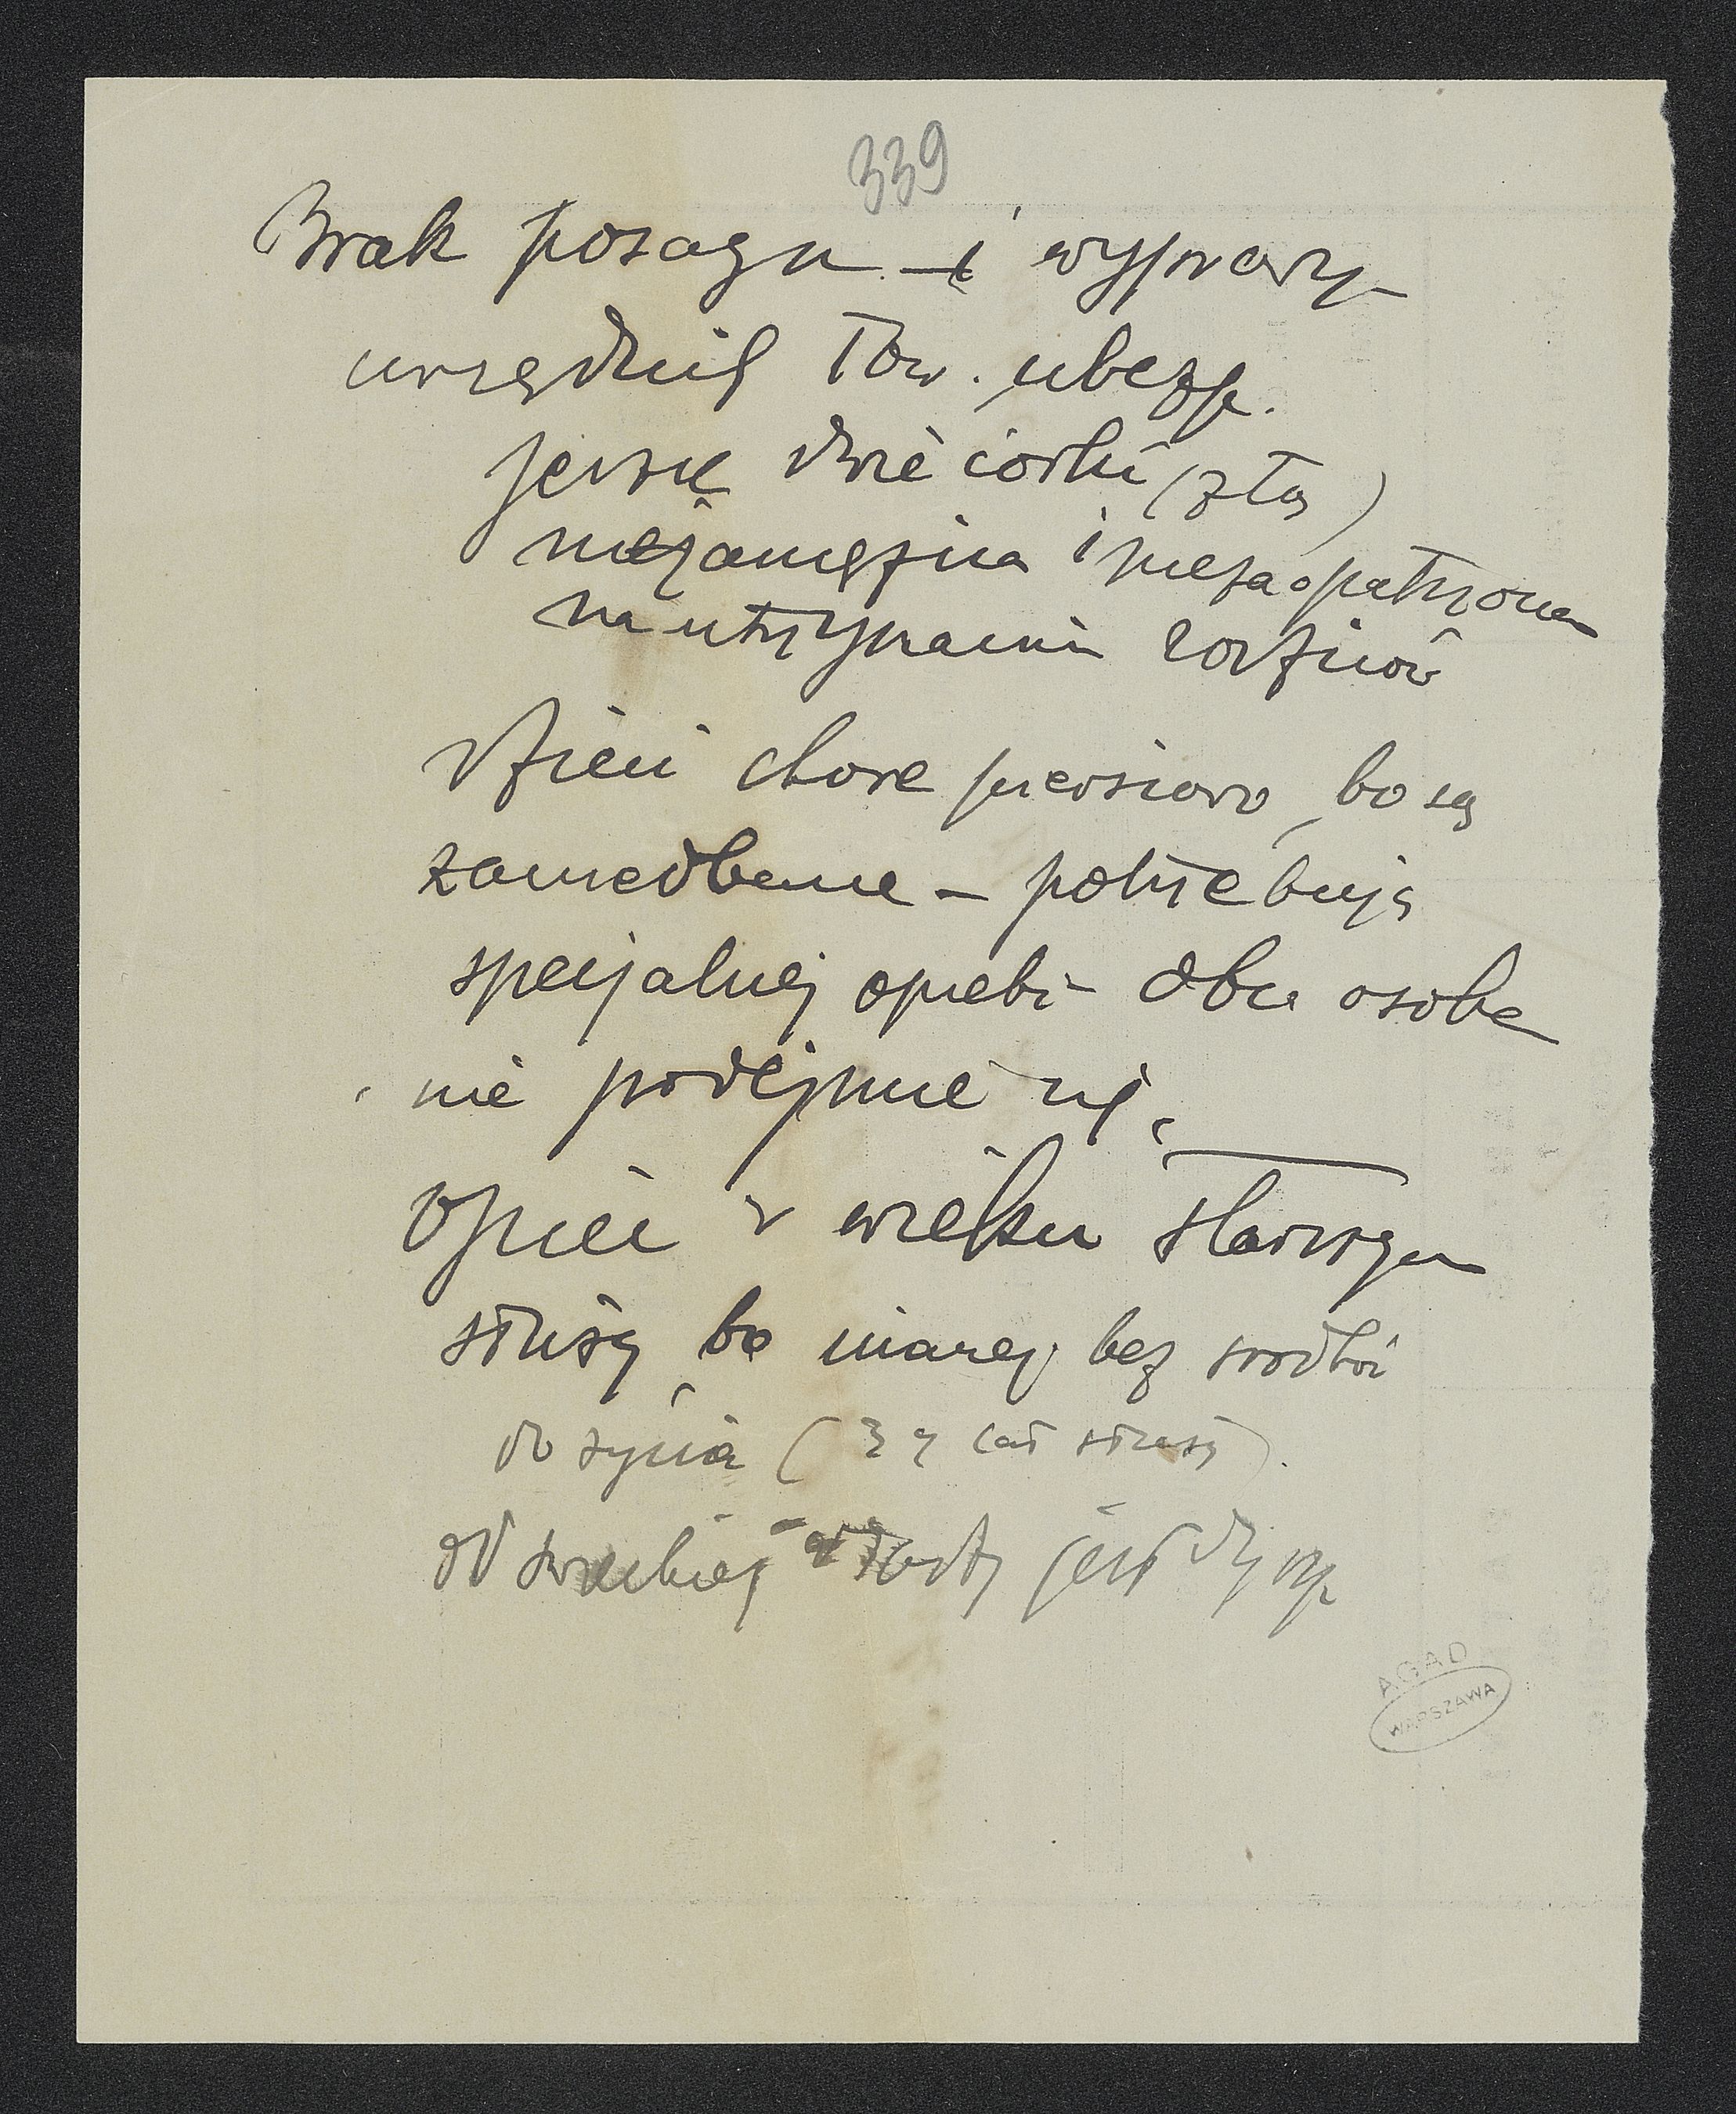 339
Brak posagu i wyprawy
urzędnik Tow. ubezp.
jeszcze dwie córki (z tą)
niezamężna i niezaopatrzona
na utrzymaniu rodziców
Dzieci chore piersiowo, bo są
zaniedbane – potrzebują
specjalnej opieki – obca osoba
nie podejmie się.
Ojciec w wieku starszym
służy bo inaczej bez środków
do życia (39 lat służy).
od wielkiej wody jest
AGAD
WARSZAWA